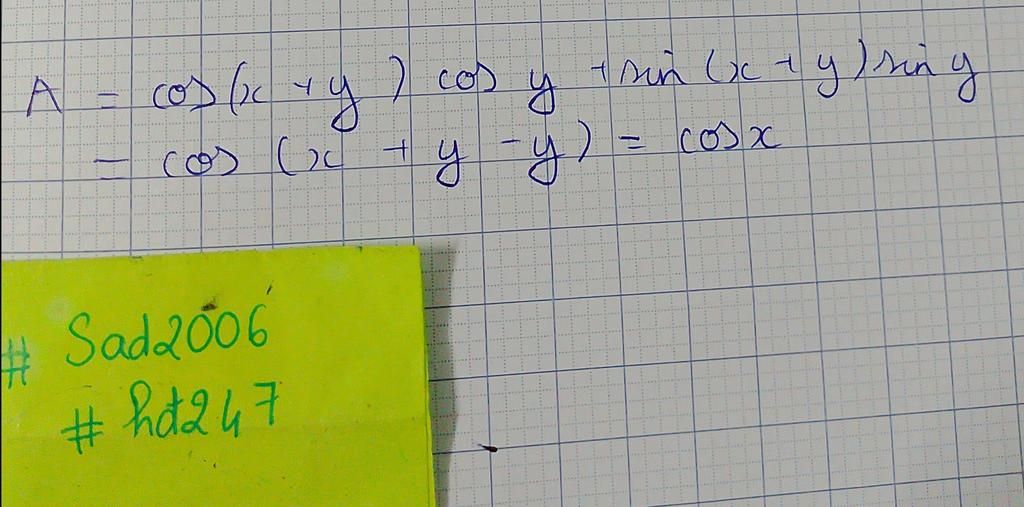 A = cos(x + y) cos y + sin(x + y) sin y
= cos (x + y - y) = cos x
# Sad2006
# hd247